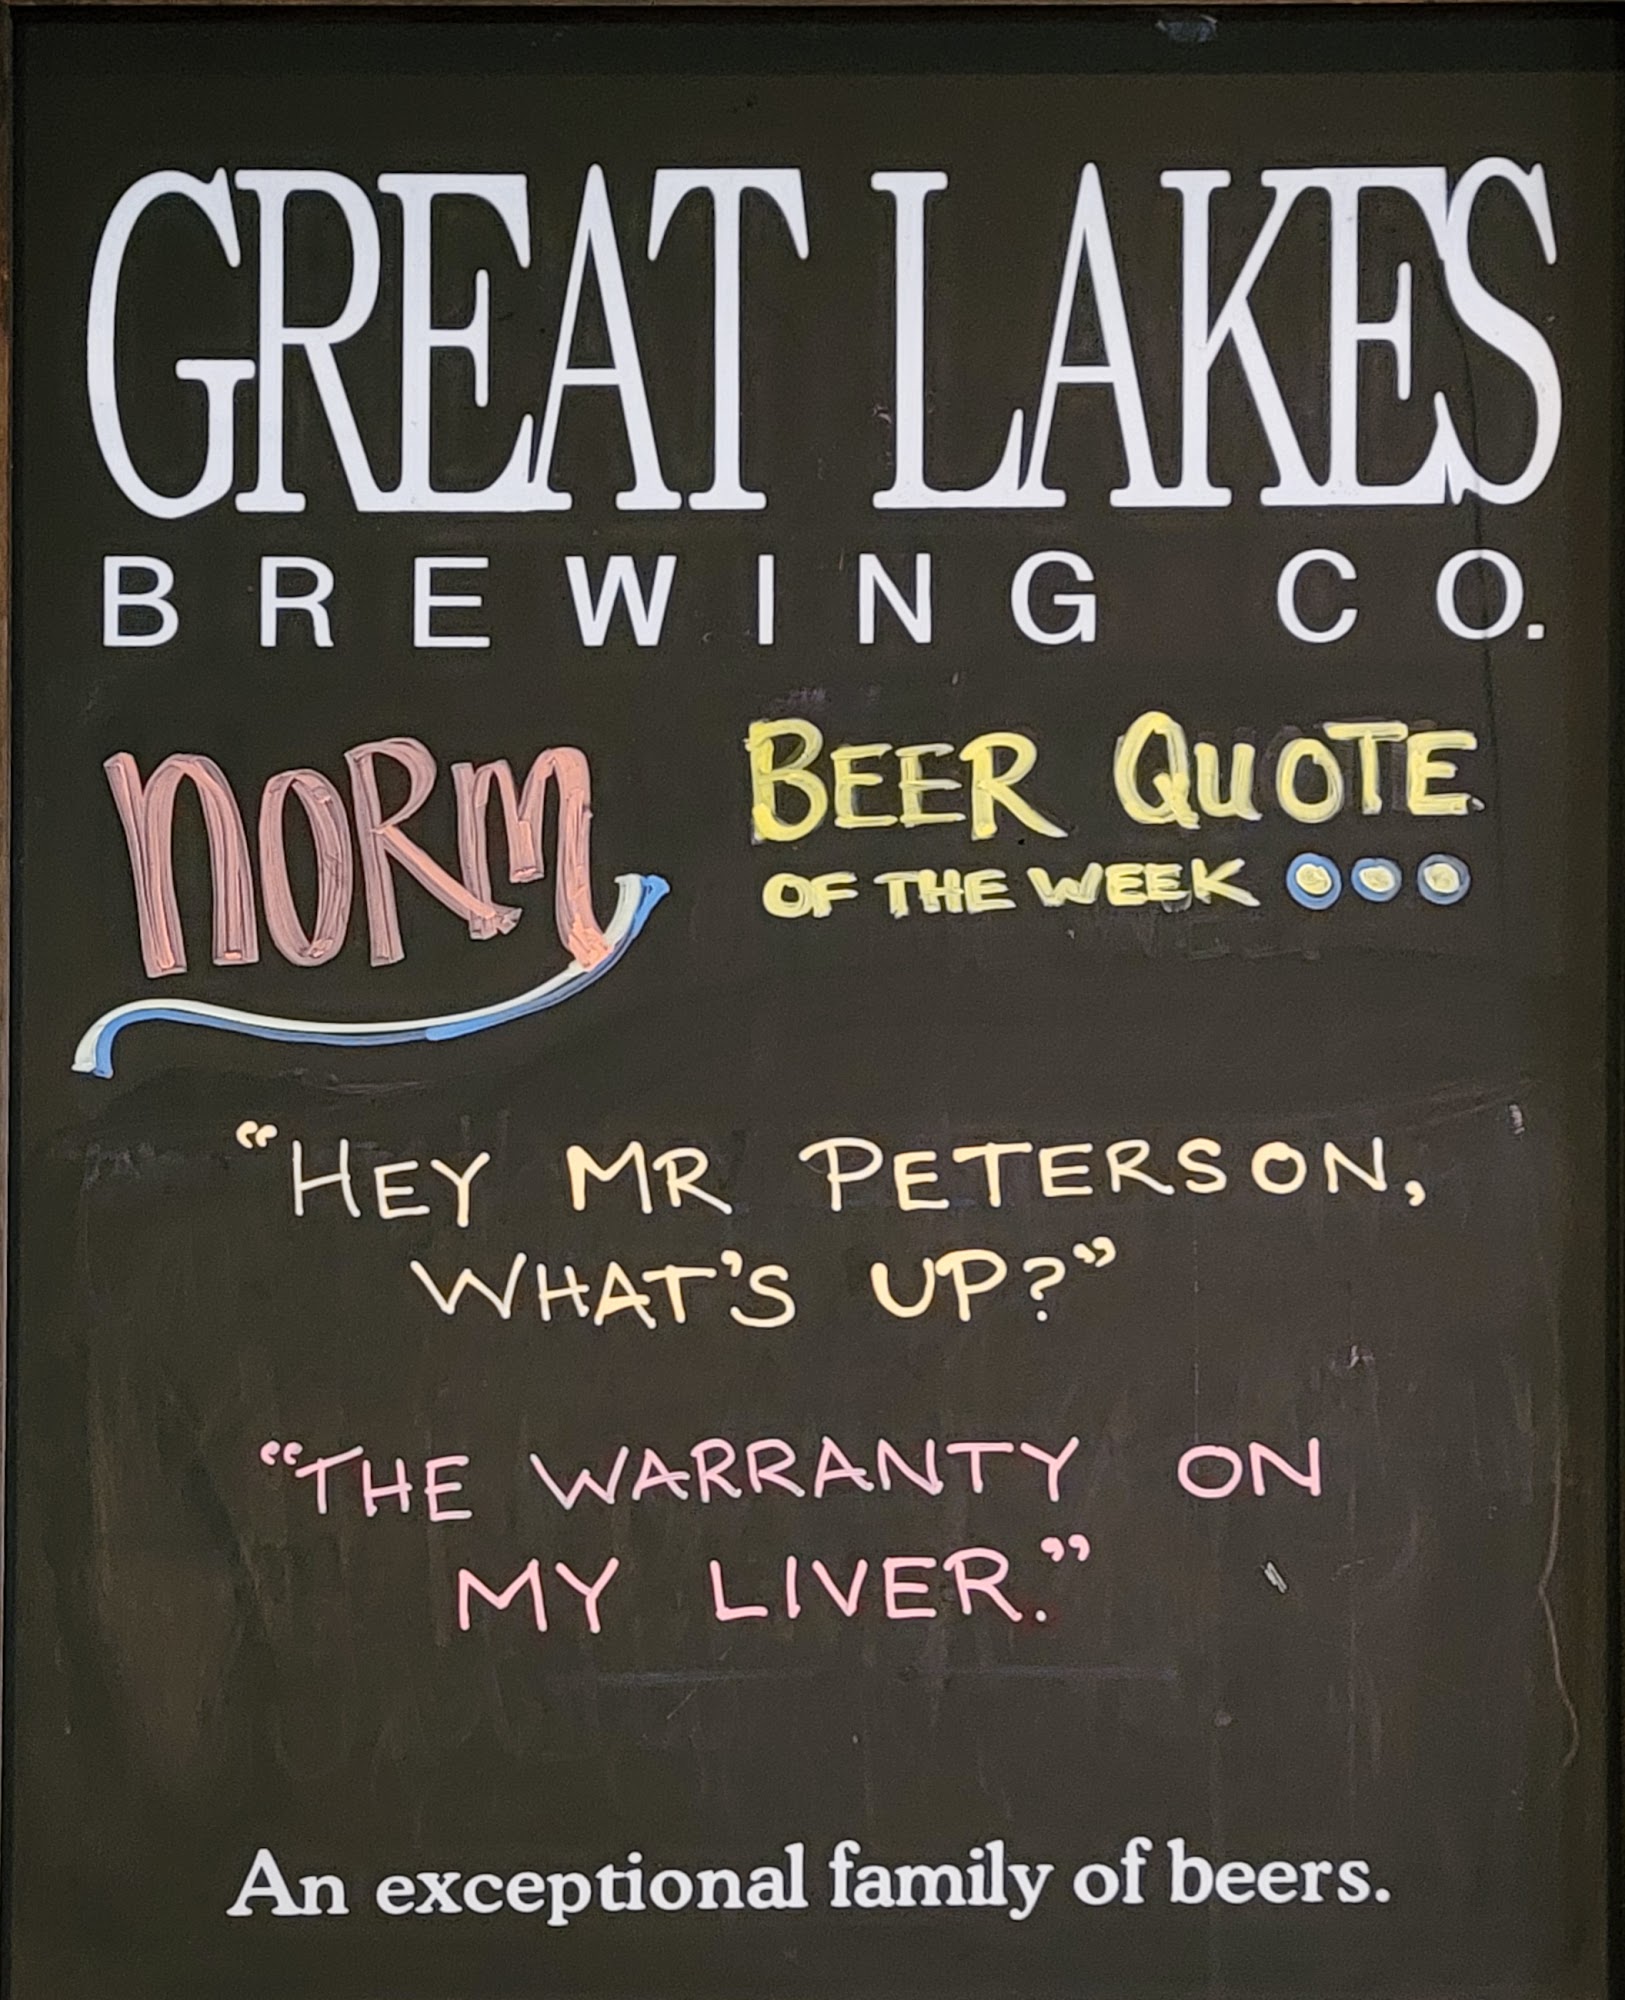 GREAT LAKES
BREWING CO.
NORM
BEER QUOTE
OF THE WEEK
“HEY MR PETERSON,
WHAT’S UP?”
“THE WARRANTY ON
MY LIVER.”
An exceptional family of beers.